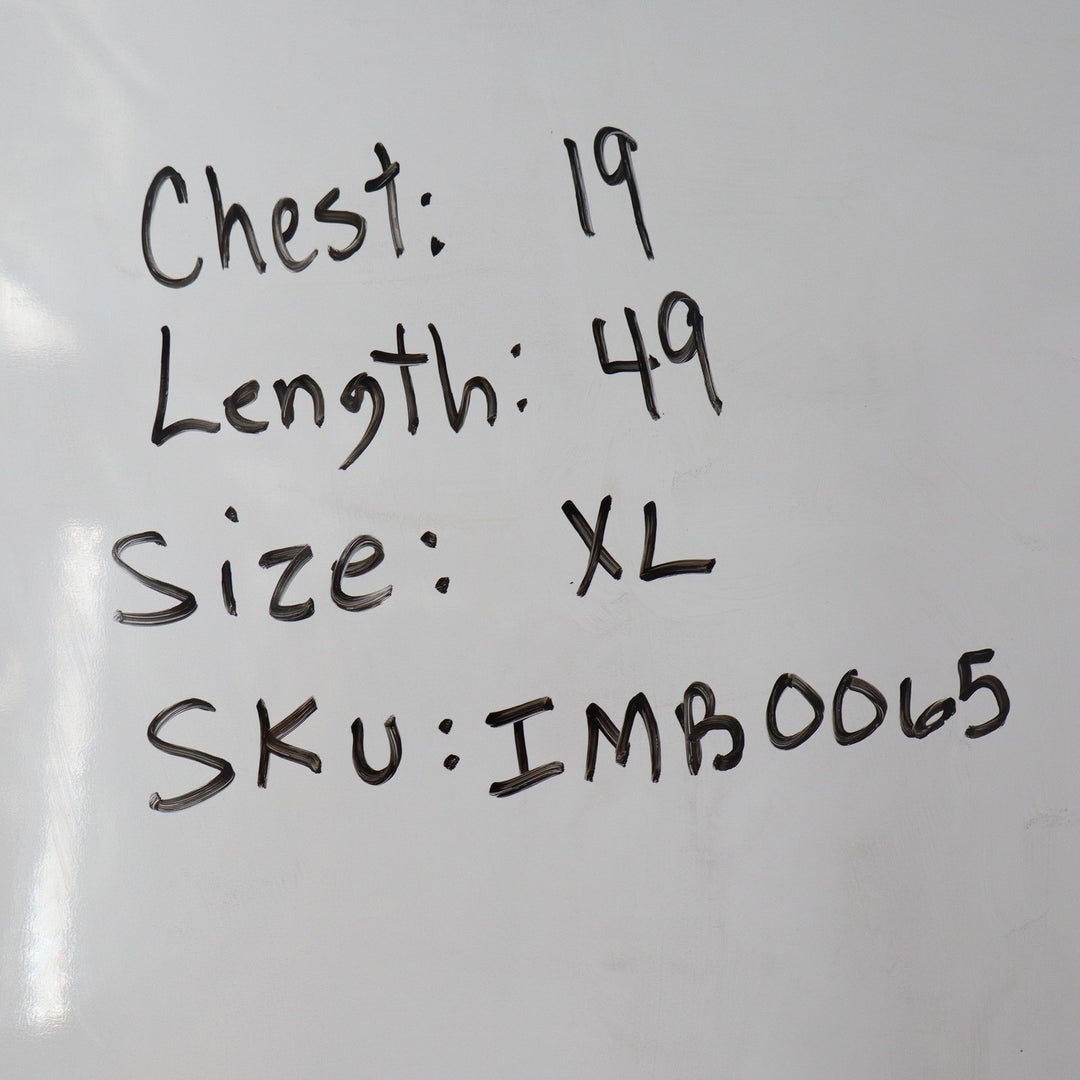 Chest: 19
Length: 49
Size: XL
SKU: IMB0065